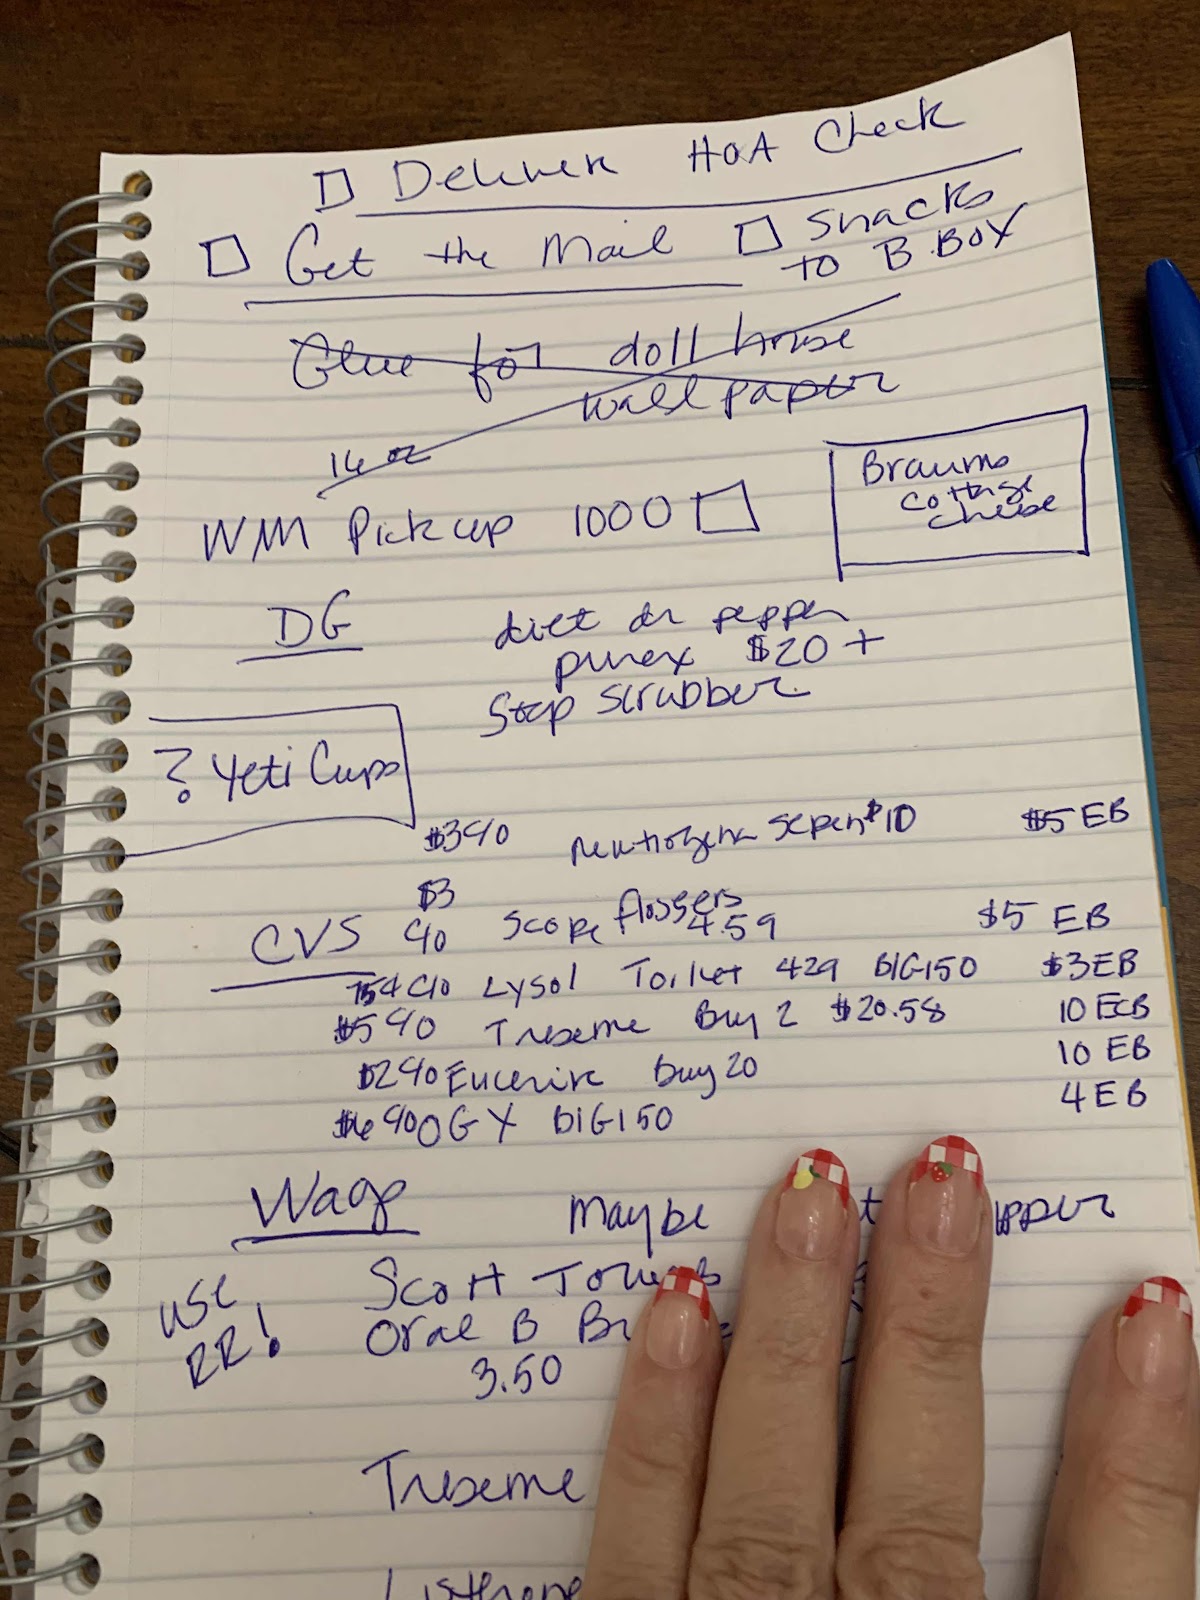 Deliver HOA Check
Get the Mail
Snacks
to B.BOX
Glue for doll house
wall paper
16 oz
WM Pickup 1000
Braums
cottage
cheese
DG
diet dr pepper
purex $20 +
Stop scrubber
? Yeti Cups
$3 90 $10 $5 EB
$3
CVS 90 Scope flossers 4.59 $5 EB
Lysol Toilet 429 B1G150 $3 EB
$5 90 Treseme Buy 2 $20.58 10 ECB
$2 90 Eucerin buy 20 10 EB
$6 90 OGX B1G150 4 EB
Wags Maybe
use
RR!
Scott Towels
Oral B
3.50
Treseme